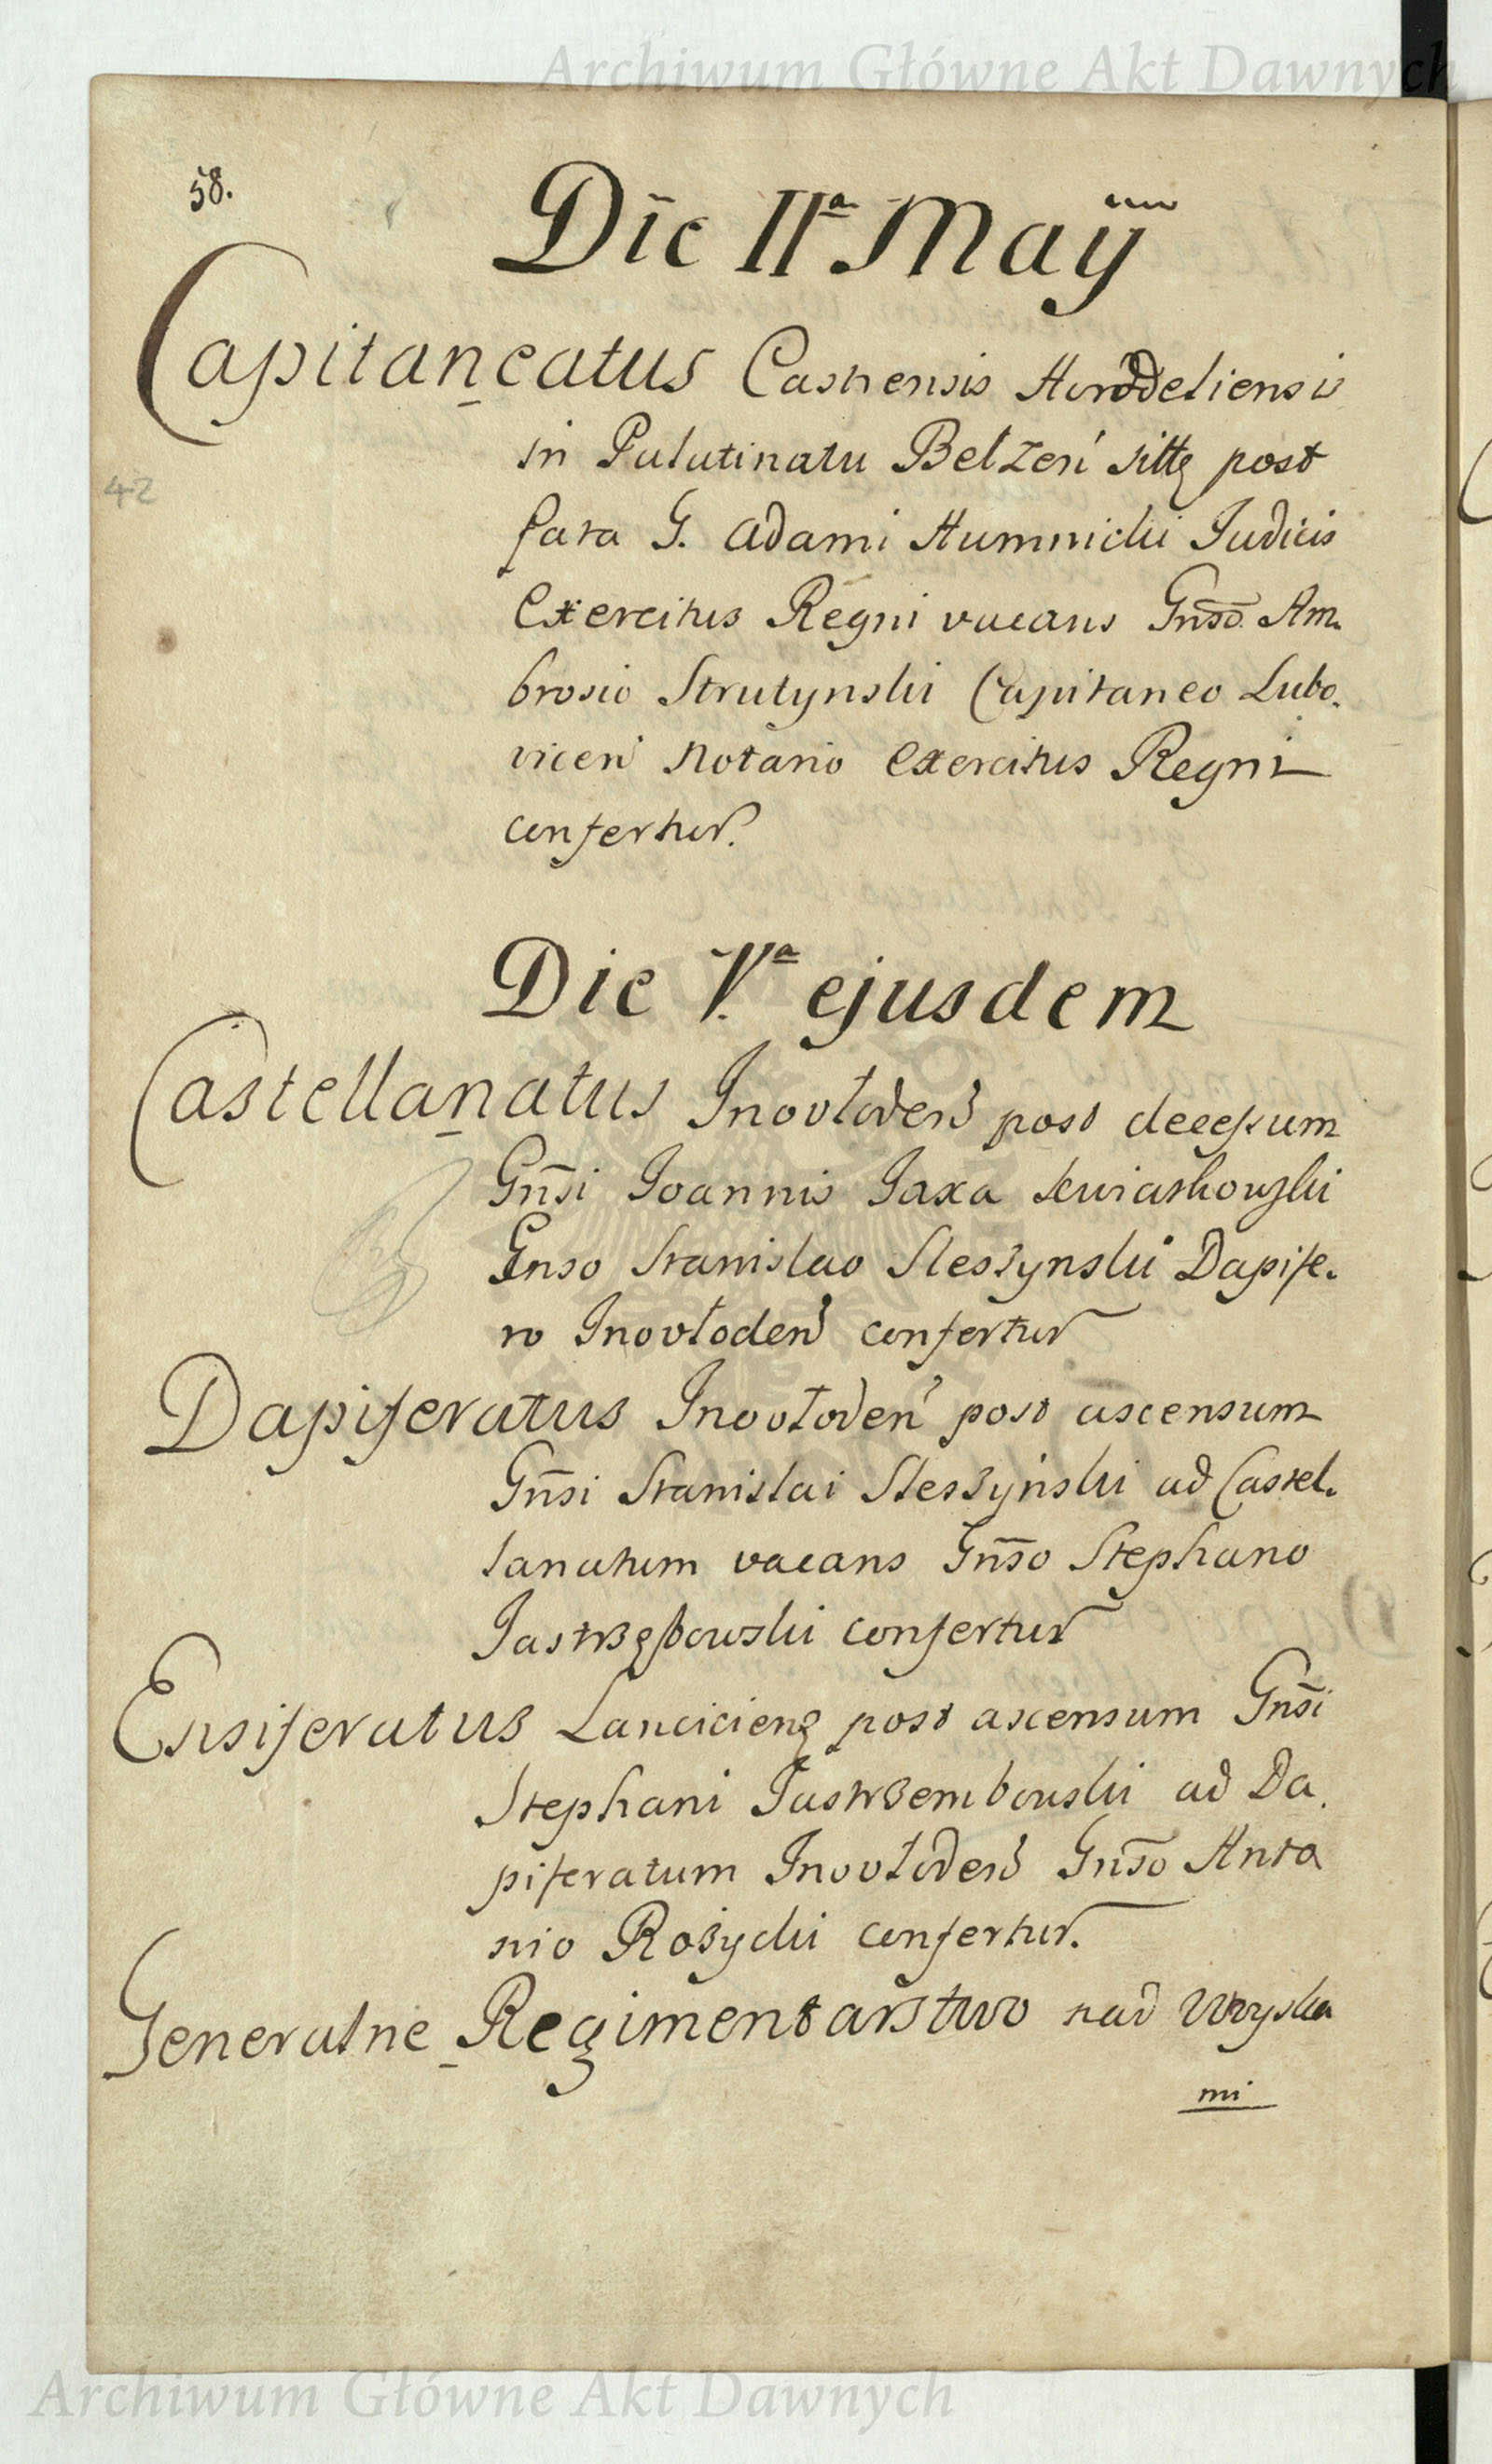 Archiwum Główne Akt Dawnych
58.
Die IIª Maÿ
Capitaneatus Castrensis Horodeliensis
42
in Palatinatu Belzeń sittꝫ post
fata G. Adami Humnicki Judicis
Exercitus Regni vacans Gnso Am.
brosio Strutynski Capitaneo Lubo.
viceń Notario Exercitus Regni
confertur.
Die V.ª ejusdem
Castellanatus Inovłodeń post decessum
Gn̄si Joannis Jaxa Kwiatkowski
Gnso Stanislao Sleszynski Dapife.
ro Inovłodeń confertur
Dapiferatus Inovłodeń post ascensum
Gn̄si Stanislai Sleszyński ad Castel.
lanatum vacans Gn̄so Stephano
Jastrzębowski confertur
Ensiferatus Lancicienꝫ post ascensum Gn̄si
Stephani Jastrzembowski ad Da.
piferatum Inovłodeń Gn̄so Anto
nio Rożycki confertur.
Generalne Regimentarstwo nad Woyska
mi
Archiwum Główne Akt Dawnych